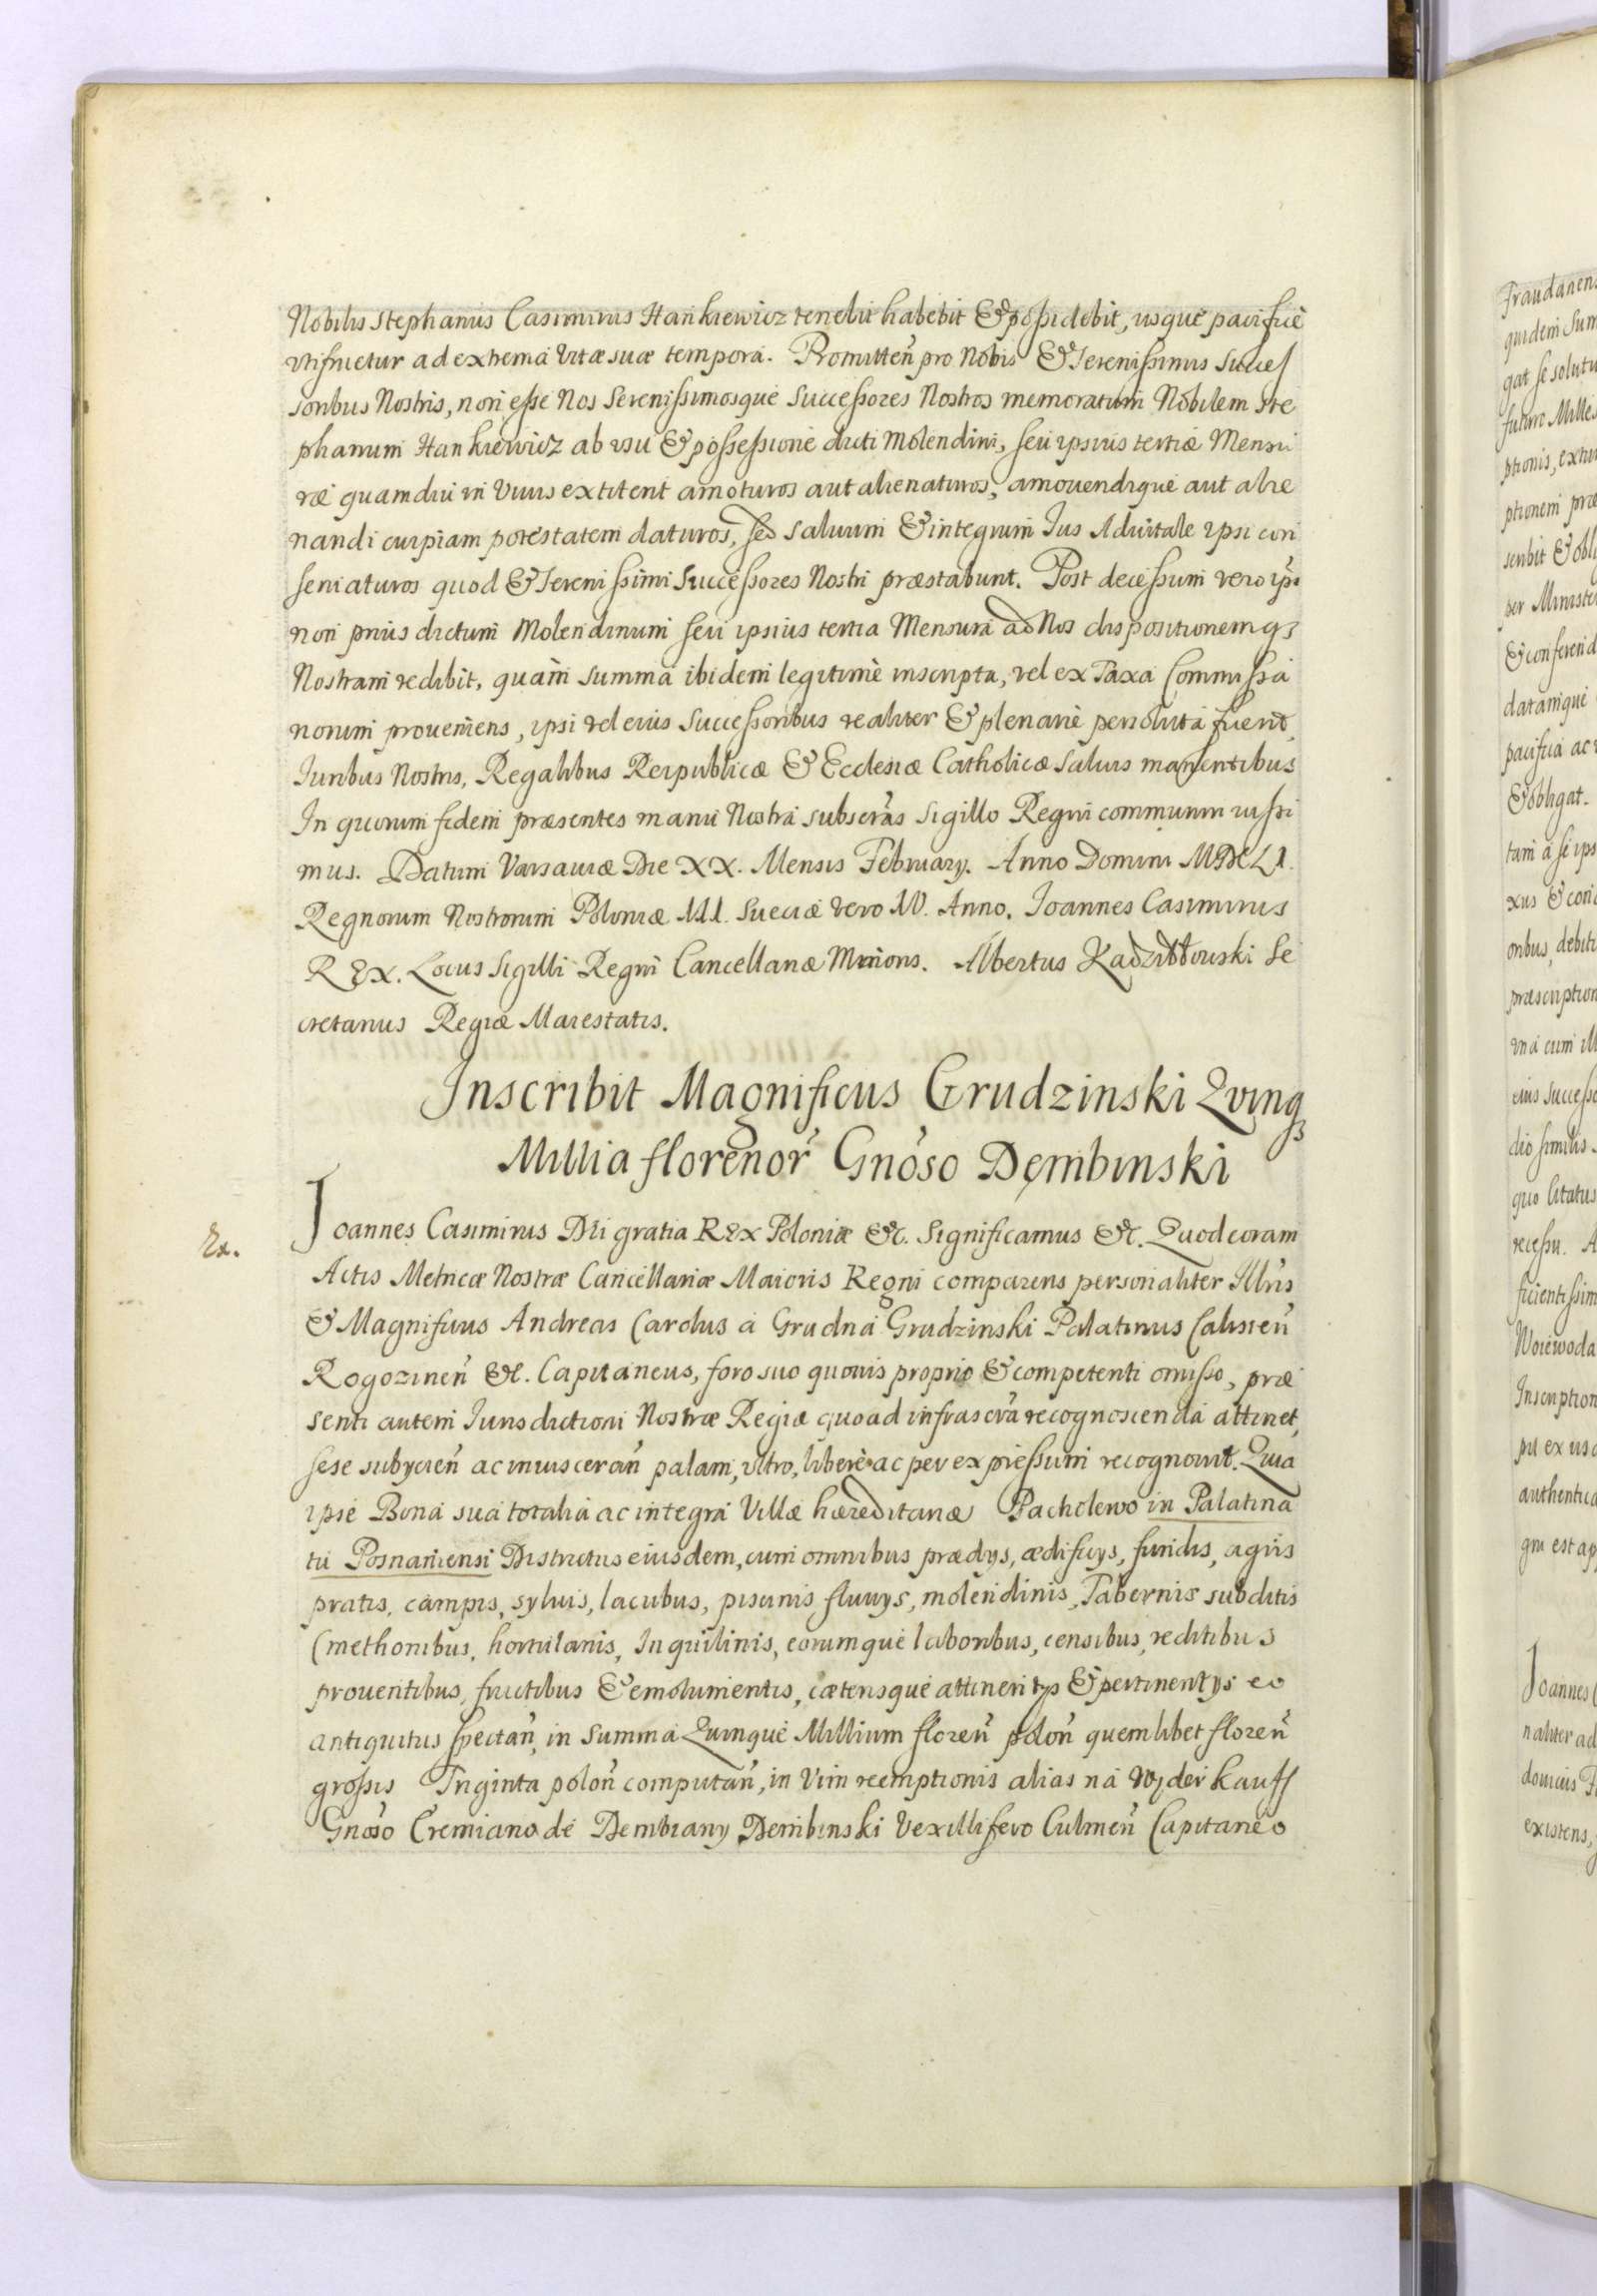 Nobilis Stephanus Casimirus Hankiewicz tenebit habebit & possidebit, usque pacifice
utifruetur ad extrema vitæ suæ tempora. Promitteñ pro Nobis & Serenissimis Succes
soribus Nostris, non esse Nos Serenissimosque Successores Nostros memoratum Nobilem Ste
phanum Hankiewicz ab usu & possessione dicti Molendini, seu ipsius tertiæ Mensu
ræ quamdiu in Vivis extiterit amoturos aut alienaturos, amovendique aut alie
nandi cuipiam potestatem daturos, sed salvum & integrum Ius Advitale ipsi con
servaturos quod & Serenissimi Successores Nostri præstabunt. Post decessum vero ips
non prius dictum Molendinum seu ipsius tertia Mensura ad Nos dispositionemq3
Nostram redibit, quàm summa ibidem legitimè inscripta, vel ex Taxa Commissa
riorum proveniens, ipsi vel eius Successoribus realiter & plenariè persoluta fuerit,
Iuribus Nostris, Regalibus Reipublicæ & Ecclesiæ Catholicæ Salvis manentibus
In quorum fidem præsentes manu Nostra subscr̃as Sigillo Regni communiri iussi
mus. Datum Varsaviæ Die XX. Mensis February. Anno Domini MDCLI.
Regnorum Nostrorum Poloniæ III. Sueciæ vero IV. Anno. Ioannes Casimirus
REX. Locus Sigilli Regni Cancellariæ Minoris. Albertus Kadzidłowski Se
cretarius Regiæ Maiestatis.
Inscribit Magnificus Grudzinski Quinq3
Millia florenor̃ Gnõso Dembinski
Ex.
Ioannes Casimirus Dei gratia REX Poloniæ &c. Significamus &c. Quod coram
Actis Metricæ Nostræ Cancellariæ Maioris Regni comparens personaliter Illr̃is
& Magnificus Andreas Carolus a Grudna Grudzinski Palatinus Calisieñ
Rogozineñ &c. Capitaneus, foro suo quovis proprio & competenti omisso, præ
senti autem Iurisdictioni Nostræ Regiæ quoad infrascr̃a recognoscenda attinet,
sese subycieñ ac inuisceran̄ palam, ultro, liberè ac per expressum recognovit. Quia
ipse Bona sua totalia ac integra Villæ hæreditariæ Pacholewo in Palatina
tu Posnaniensi Districtus eiusdem, cum omnibus prædys, ædificys, fundis, agris
pratis, campis, sylvis, lacubus, piscinis fluvys, molendinis, Tabernis subditis
Cmethonibus, hortulanis, Inquilinis, eorumque laboribus, censibus, reditibus
proventibus, fructibus & emolumentis, cæterisque attinentys & pertinentys eo
antiquitus spectañ, in Summa Quinque Millium floreñ poloñ quemlibet floreñ
grossis Triginta poloñ computañ, in Vim reemptionis alias na Wyderkauff
Gnõso Cremiano de Dembiany Dembinski Vexillifero Culmeñ Capitaneo